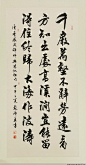 千巖萬壑不辭勞遠看
方知出處高溪澗豈能留
得住終歸大海作波濤